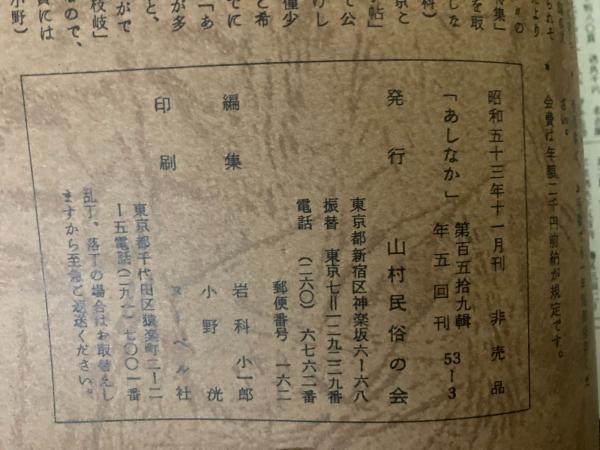 昭和五十三年十一月刊　非売品
「あしなか」第百五拾九輯　53―3
年五回刊
発行　山村民俗の会
東京都新宿区神楽坂六―六八
振替　東京七=一二九三二九番
電話　（二六〇）　六七六二番
郵便番号　一六二
編集　岩科　小一郎
小野　洸
印刷　ヌーベル社
東京都千代田区猿楽町二―二
―五電話（二九一）七〇〇一番
乱丁、落丁の場合はお取替えし
ますから至急ご返送ください。
さい。
会費は年額二千円前納が規定です。